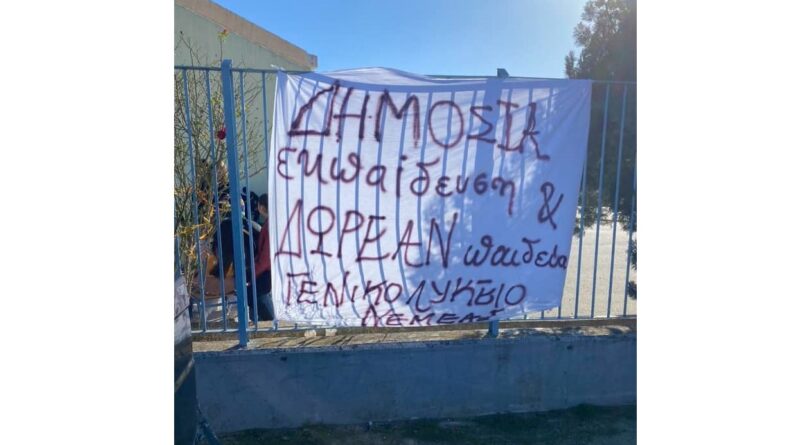 ΔΗΜΟΣΙΑ
εκπαίδευση &
ΔΩΡΕΑΝ παιδεία
ΓΕΝΙΚΟ ΛΥΚΕΙΟ
ΝΕΜΕΑΣ